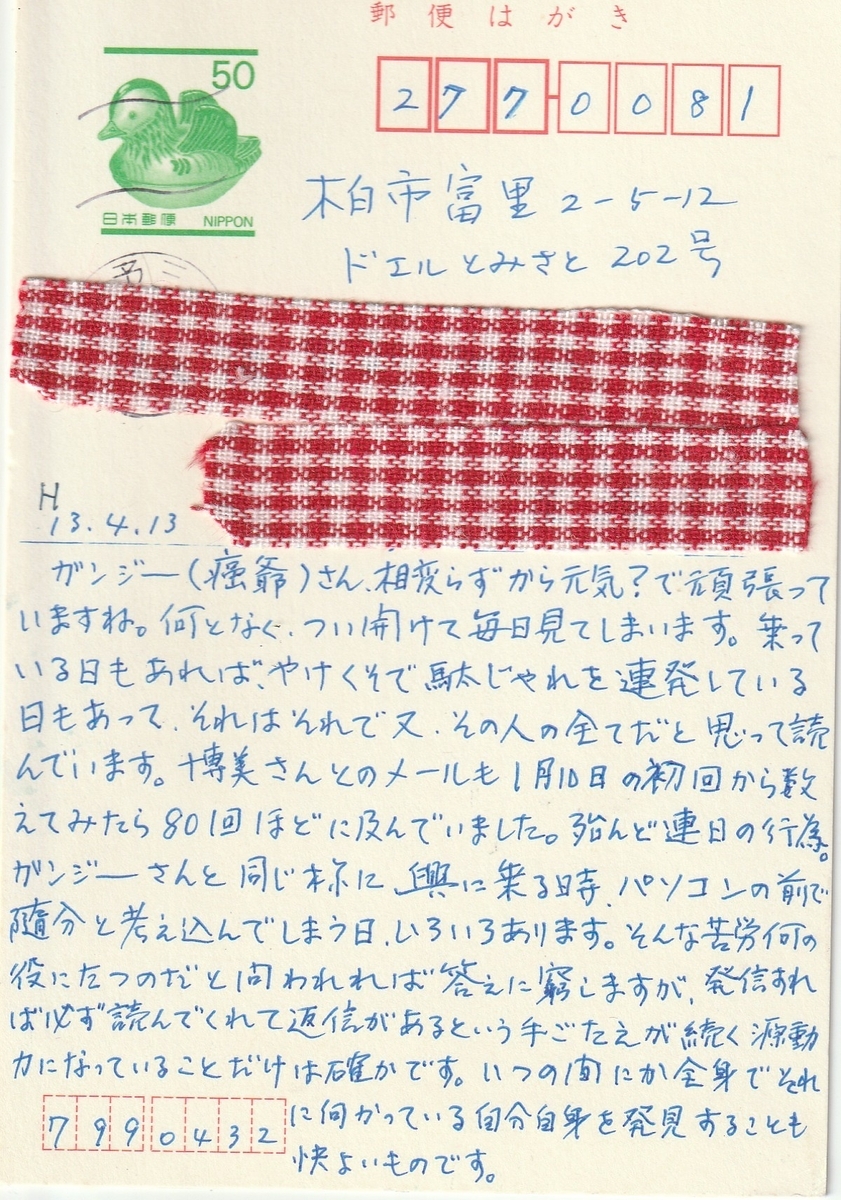 郵便はがき
50
日本郵便 NIPPON
277-0081
柏市富里 2-5-12
ドエルとみさと 202号
三
予
H
13.4.13
ガンジー(癌爺)さん、相変らずから元気?で頑張って
いますね。何となく、つい開けて毎日見てしまいます。乗って
いる日もあれば、やけくそで駄じゃれを連発している
日もあって、それはそれで又、その人の全てだと思って読
んでいます。博美さんとのメールも1月10日の初回から数
えてみたら80回ほどに及んでいました。殆んど連日の行為。
ガンジーさんと同じ様に興に乗る時、パソコンの前で
随分と考え込んでしまう日、いろいろあります。そんな苦労何の
役にたつのだと問われれば答えに窮しますが、発信すれ
ば必ず読んでくれて返信があるという手ごたえが続く源動
力になっていることだけは確かです。いつの間にか全身でそれ
に向かっている自分自身を発見することも
快よいものです。
7990432